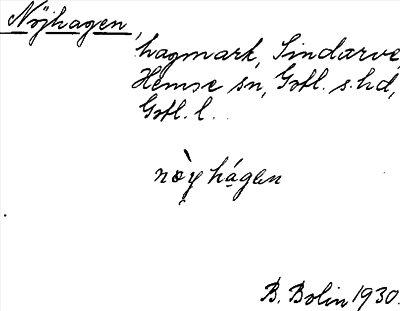 Nöjhagen,
hagmark, Sindarve,
Hemse sn, Gotl. s. hd,
Gotl. l.
nòy hágen
B. Bolin 1930.